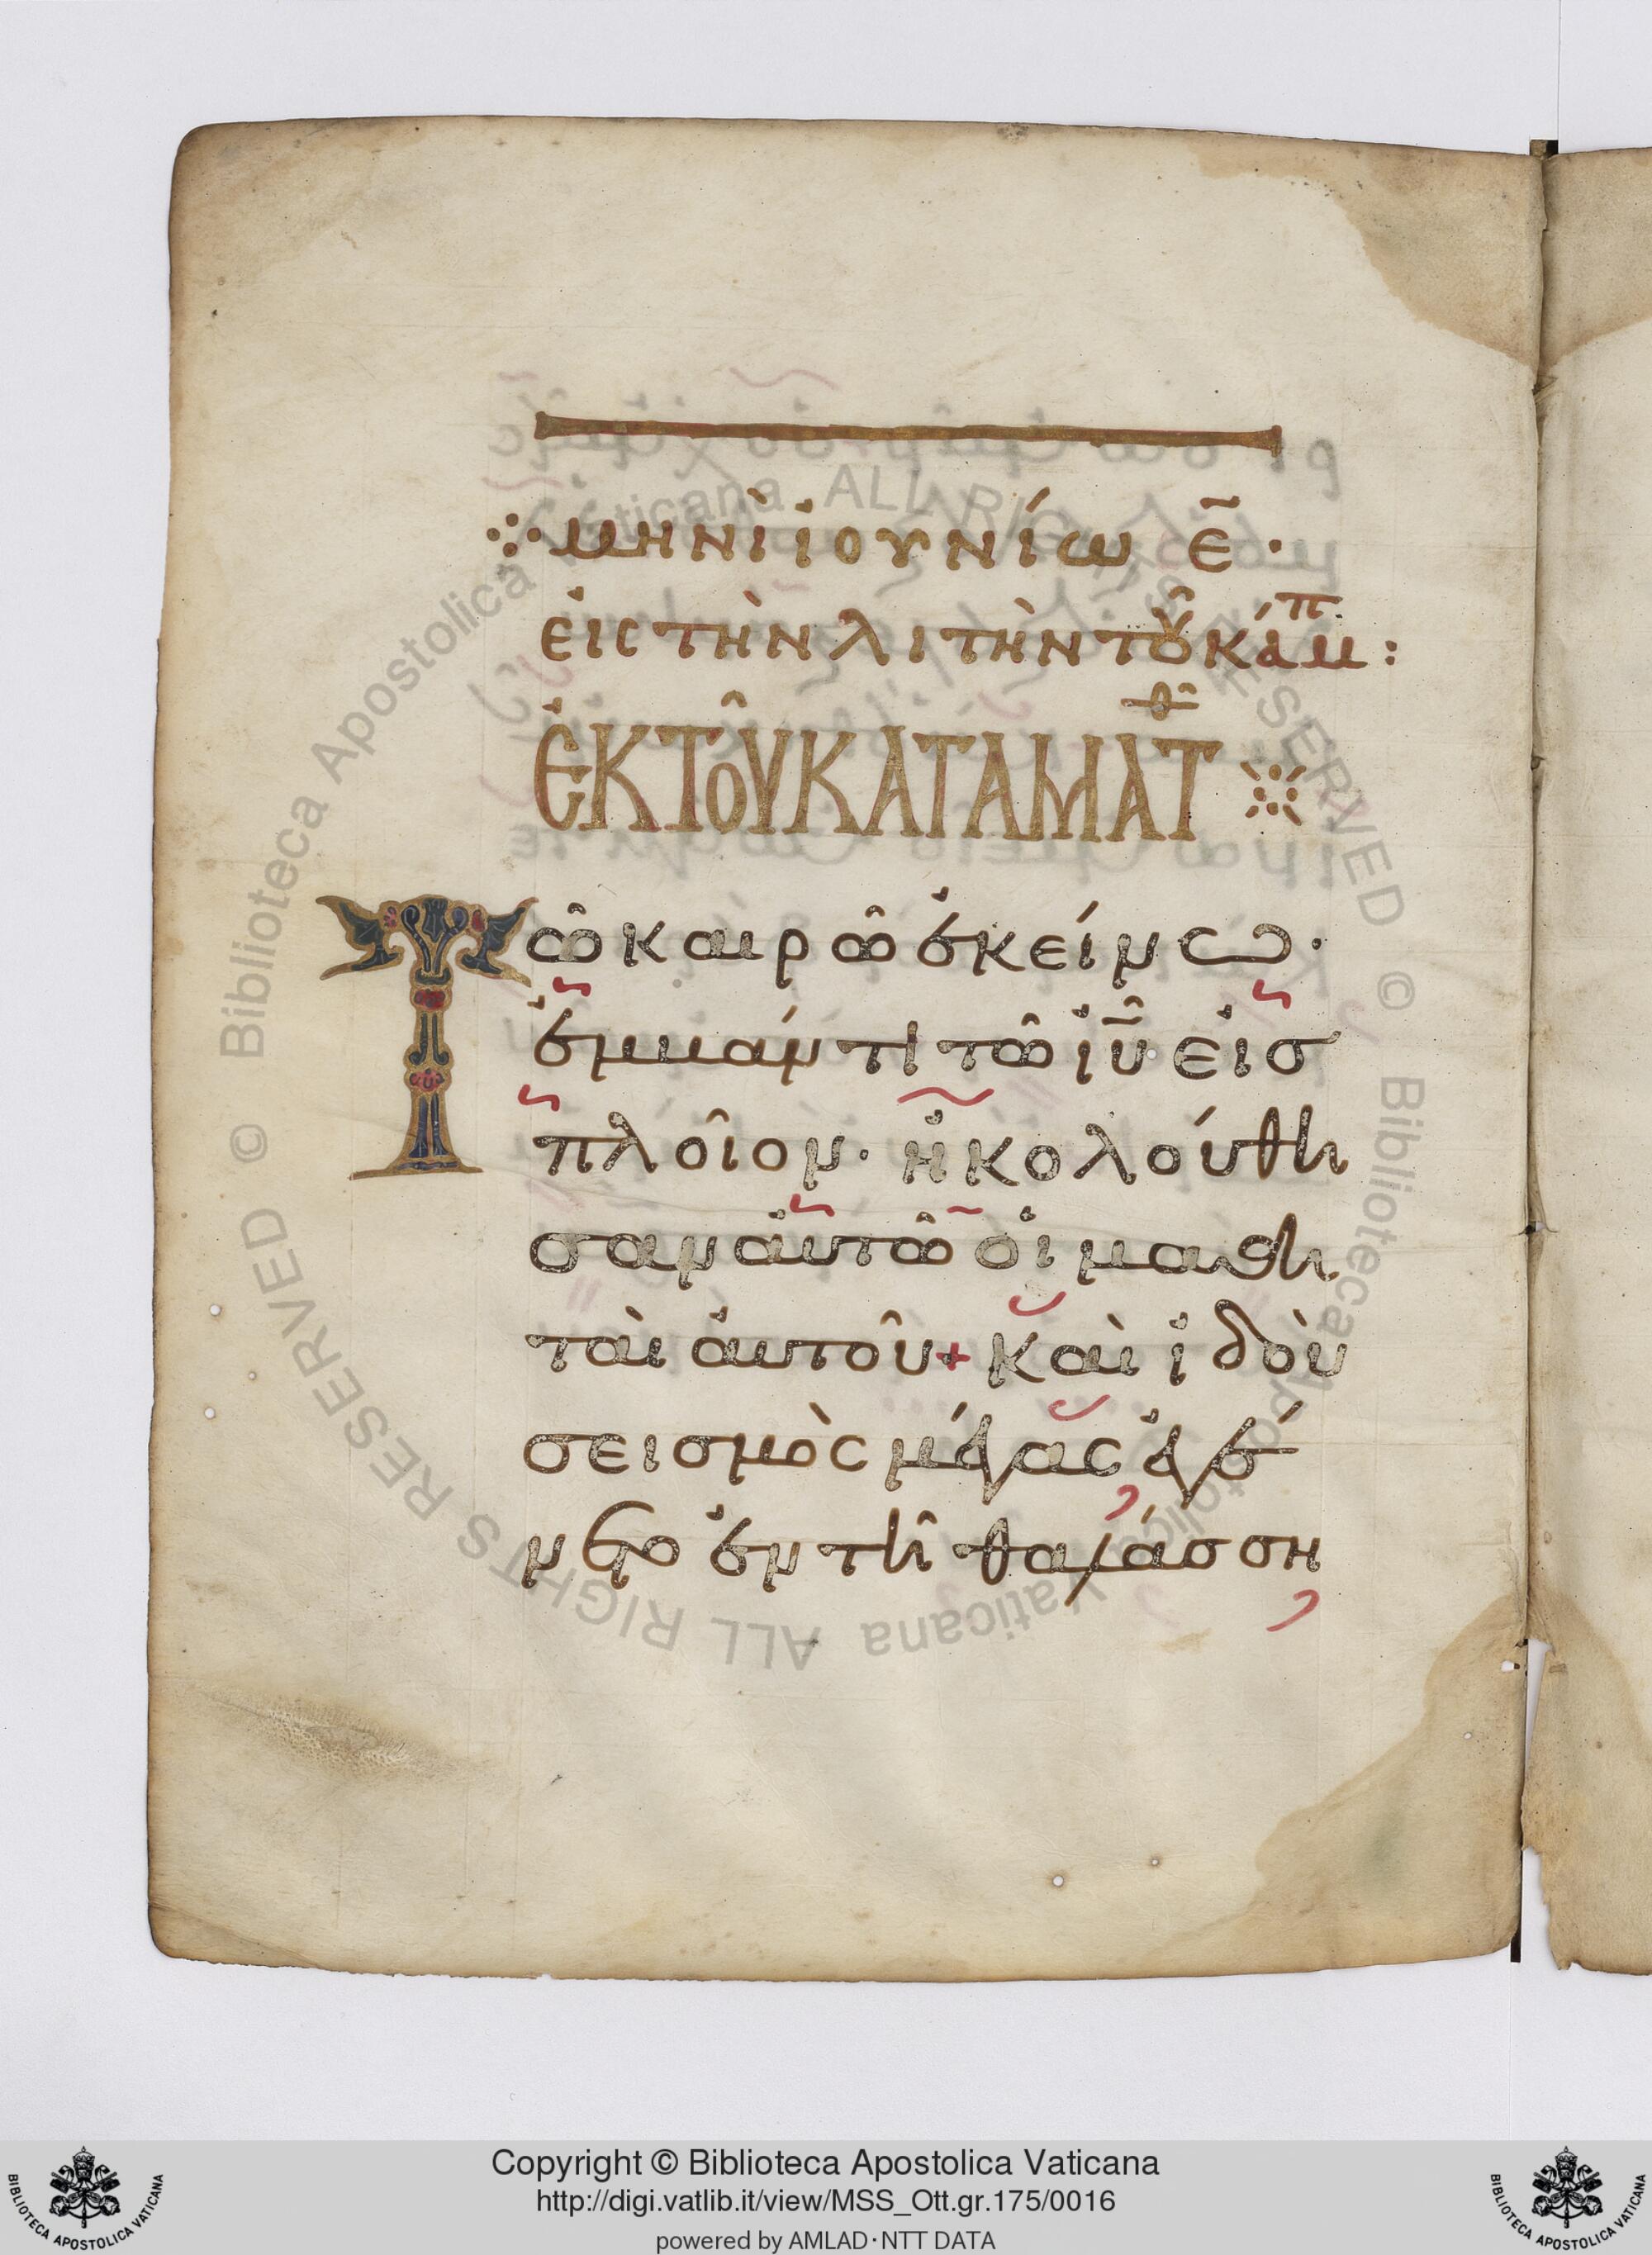 μηνὶ ἰουνίω ε̄·
εἰς τὴν λιτὴν τοῦ κάμπ:
ἐκ τοῦ κατα ματθ
Τῶ καιρῶ ἐκείνω·
ἐμβάντι τῶ ἰῡ εἰσ
πλοῖον· ἠκολούθη
σαν αὐτῶ οἱ μαθη
ταὶ αὐτοῦ + καὶ ἰδοὺ
σεισμὸς μέγας ἐγέ
νετο ἐν τῆ θαλάσση
Copyright © Biblioteca Apostolica Vaticana
http://digi.vatlib.it/view/MSS_Ott.gr.175/0016
powered by AMLAD·NTT DATA
BIBLIOTECA APOSTOLICA VATICANA
BIBLIOTECA APOSTOLICA VATICANA
© Biblioteca Apostolica Vaticana ALL RIGHTS RESERVED © Biblioteca Apostolica Vaticana ALL RIGHTS RESERVED